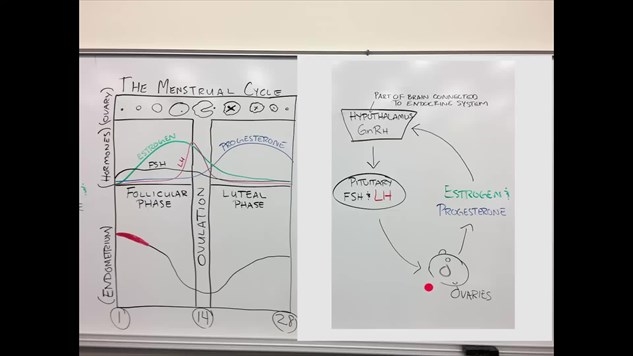 THE MENSTRUAL CYCLE
(OVARY)
(HORMONES)
ESTROGEN
FSH
LH
PROGESTERONE
FOLLICULAR
PHASE
OVULATION
LUTEAL
PHASE
(ENDOMETRIUM)
1
14
28
PART OF BRAIN CONNECTED
TO ENDOCRINE SYSTEM
HYPOTHALAMUS
GnRH
PITUITARY
FSH & LH
ESTROGEN &
PROGESTERONE
OVARIES